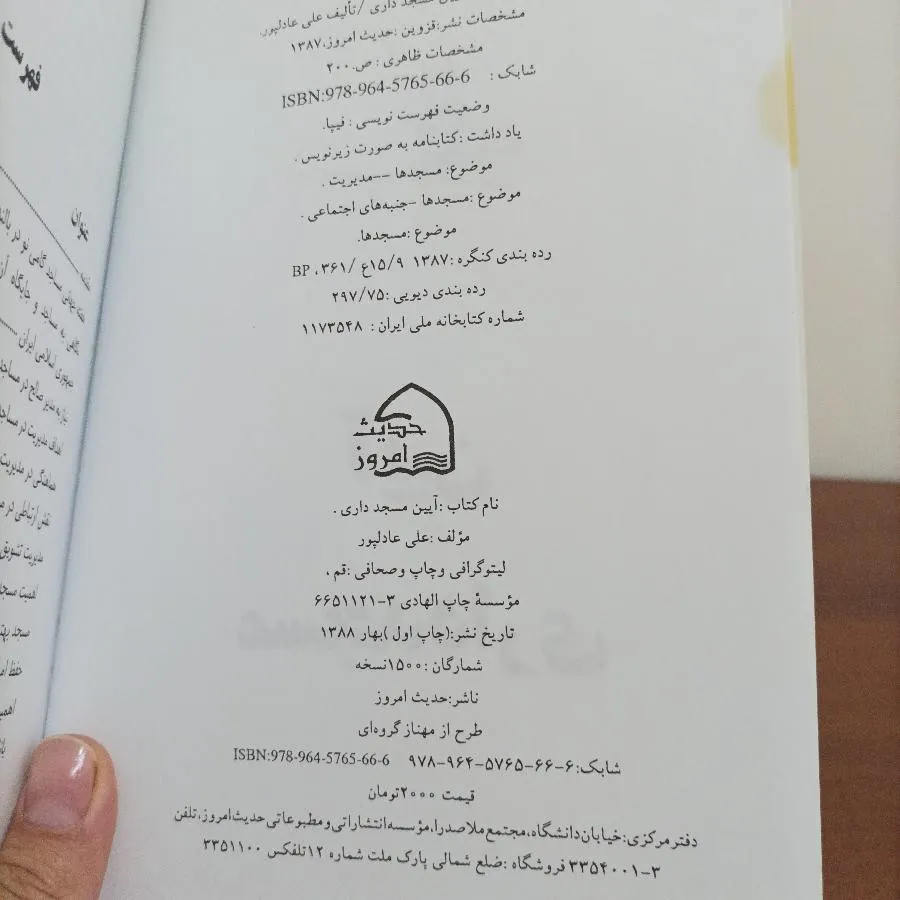 مسجد داری /تألیف علی عادلپور.
مشخصات نشر:قزوین :حدیث امروز،۱۳۸۷
مشخصات ظاهری : ص.۲۰۰
شابک : ISBN:978-964-5765-66-6
وضعیت فهرست نویسی : فیپا.
یاد داشت :کتابنامه به صورت زیرنویس .
موضوع: مسجدها --مدیریت .
موضوع :مسجدها -جنبه‌های اجتماعی .
موضوع :مسجدها.
رده بندی کنگره :۱۳۸۷ ۱۵/۹ع /۳۶۱، BP
رده بندی دیویی :۲۹۷/۷۵
شماره کتابخانه ملی ایران : ۱۱۷۳۵۴۸
حدیث
امروز
نام کتاب :آیین مسجد داری .
مؤلف :علی عادلپور
لیتوگرافی وچاپ وصحافی :قم ،
مؤسسهٔ چاپ الهادی ۳-۶۶۵۱۱۲۱
تاریخ نشر:(چاپ اول )بهار ۱۳۸۸
شمارگان :۱۵۰۰نسخه
ناشر:حدیث امروز
طرح از مهناز گروه‌ای
شابک:۶-۶۶-۵۷۶۵-۹۶۴-۹۷۸ ISBN:978-964-5765-66-6
قیمت ۲۰۰۰تومان
دفتر مرکزی:خیابان دانشگاه،مجتمع ملاصدرا،مؤسسه انتشاراتی و مطبوعاتی حدیث امروز،تلفن
۳-۳۳۵۴۰۰۱ فروشگاه :ضلع شمالی پارک ملت شماره ۱۲تلفکس ۳۳۵۱۱۰۰
فهرست
عنوان
مقدمه
مساجد گامی نو در
نگاهی به مساجد و جایگاه آن
جمهوری اسلامی ایران
نیاز به مدیر صالح در مساجد
اهداف مدیریت در مساجد
هماهنگی در مدیریت
نقش ارتباطی در
مدیریت تشویق
اهمیت مسجد
مسجد
حفظ